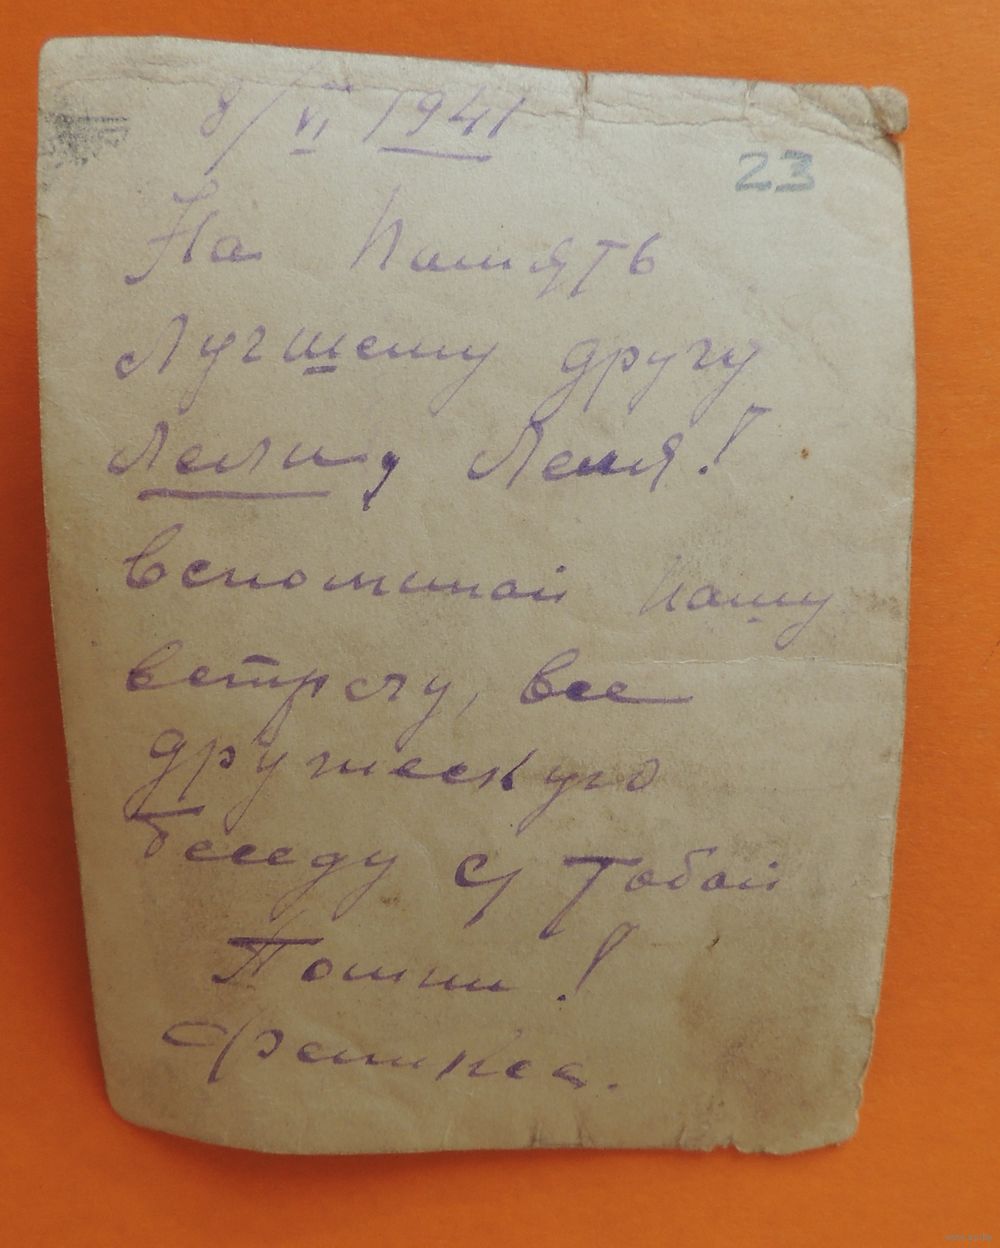 8/VI 1941
23
На Память
Лучшему другу
Лели, Леля!
вспоминай нашу
встречу, все
дружескую
беседу с Тобой
Помни!